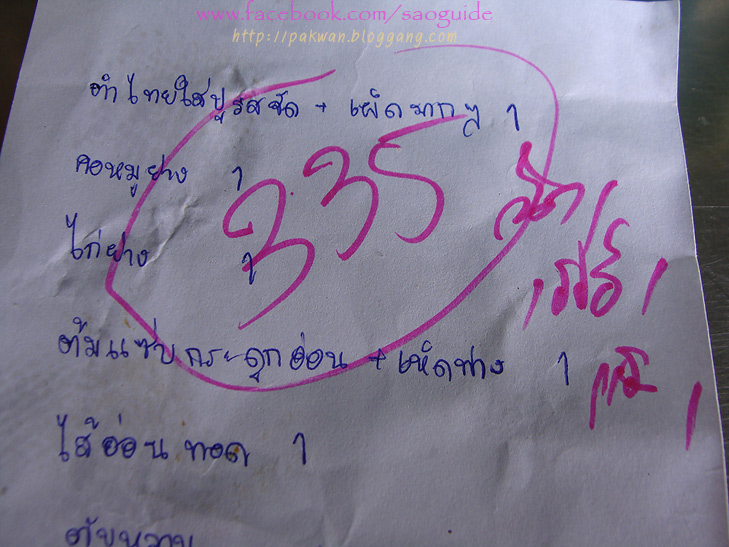 www.facebook.com/saoguide
http://pakwan.bloggang.com
ตำไทยใส่ปูรสจัด + เผ็ดมากๆ 1
คอหมูย่าง 1
335
ไก่ย่าง 1
ต้มแซ่บกระดูกอ่อน + เห็ดฟาง 1
ไส้อ่อนทอด 1
ตับหวาน